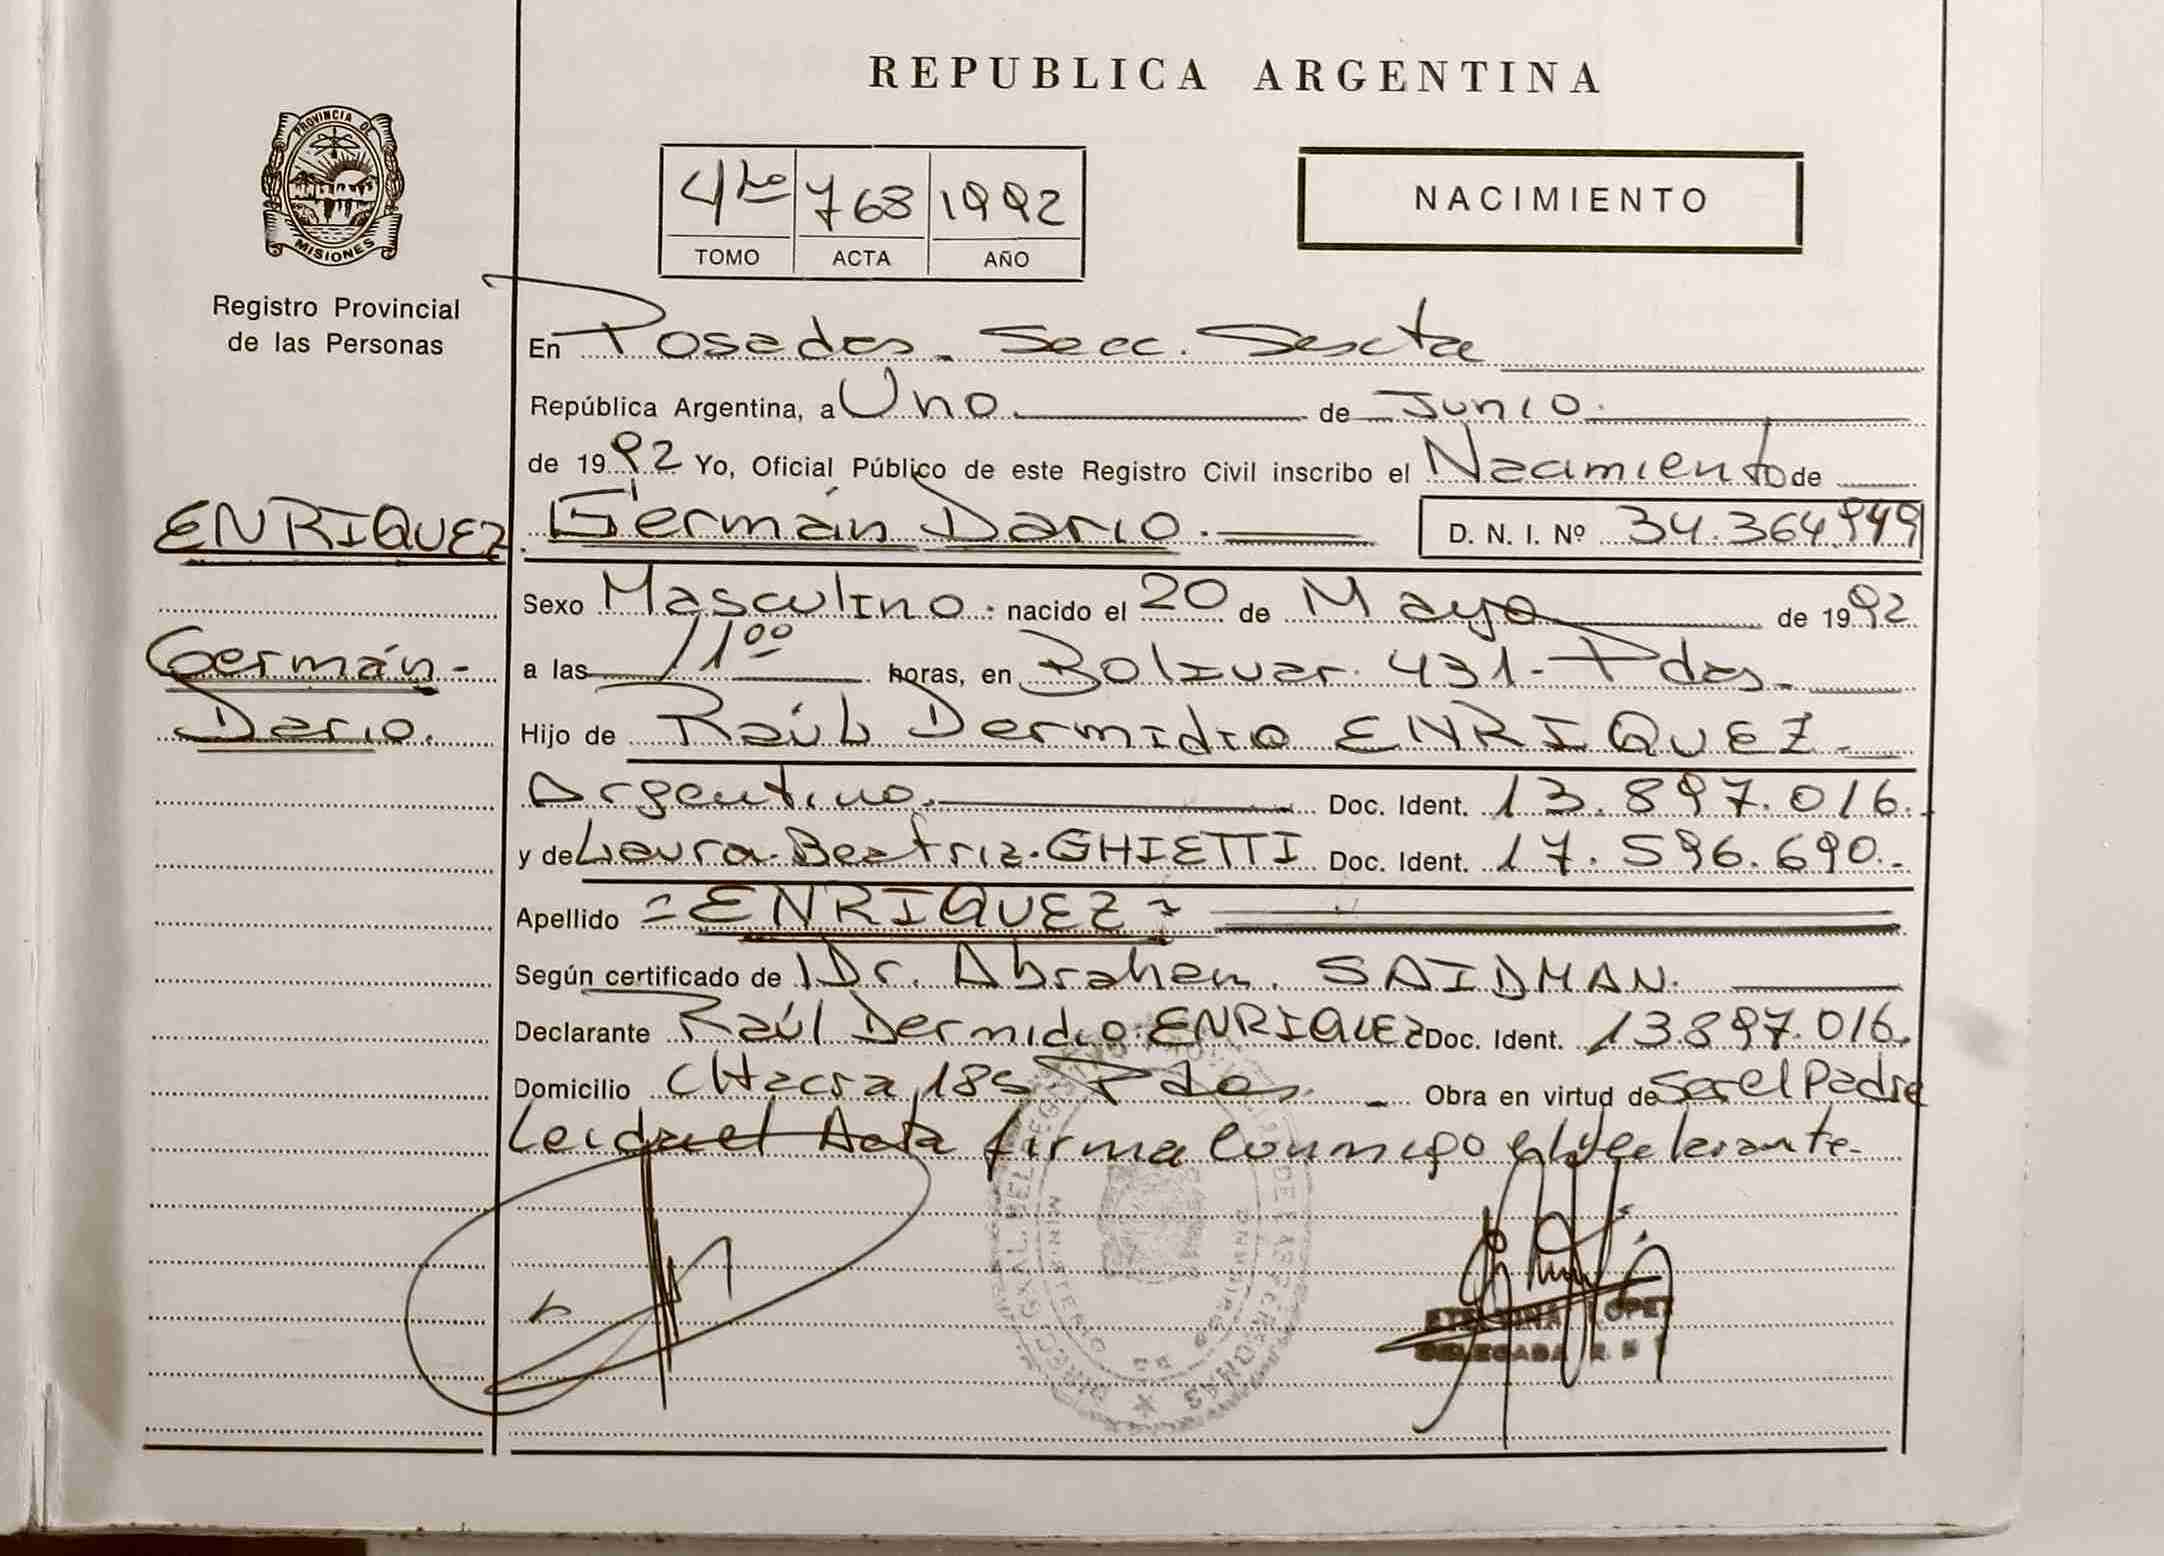 REPUBLICA ARGENTINA
PROVINCIA DE
MISIONES
Registro Provincial
de las Personas
4to 768 1992
TOMO ACTA AÑO
NACIMIENTO
En Posadas. Secc. Sexta
República Argentina, a Uno. de Junio.
de 1992 Yo, Oficial Público de este Registro Civil inscribo el Nacimiento de
ENRIQUEZ Germán Dario. D. N. I. Nº 34.364.949
Sexo Masculino. nacido el 20 de Mayo de 1992
Germán- a las 11 00 horas, en Bolivar. 431- Pdas.
Dario. Hijo de Raúl Dermidio ENRIQUEZ
Argentino. Doc. Ident. 13.897.016.
y de Laura Beatriz GHIETTI Doc. Ident. 17.596.690.-
Apellido = ENRIQUEZ =
Según certificado de Dr. Abraham. SAIDMAN.
Declarante Raúl Dermidio ENRIQUEZ Doc. Ident. 13.897.016.
Domicilio CHacra 185 Pdas. Obra en virtud de Ser el Padre
Leida el Acta firma conmigo el declarante-
LOPEZ
DELEGADA R. P.